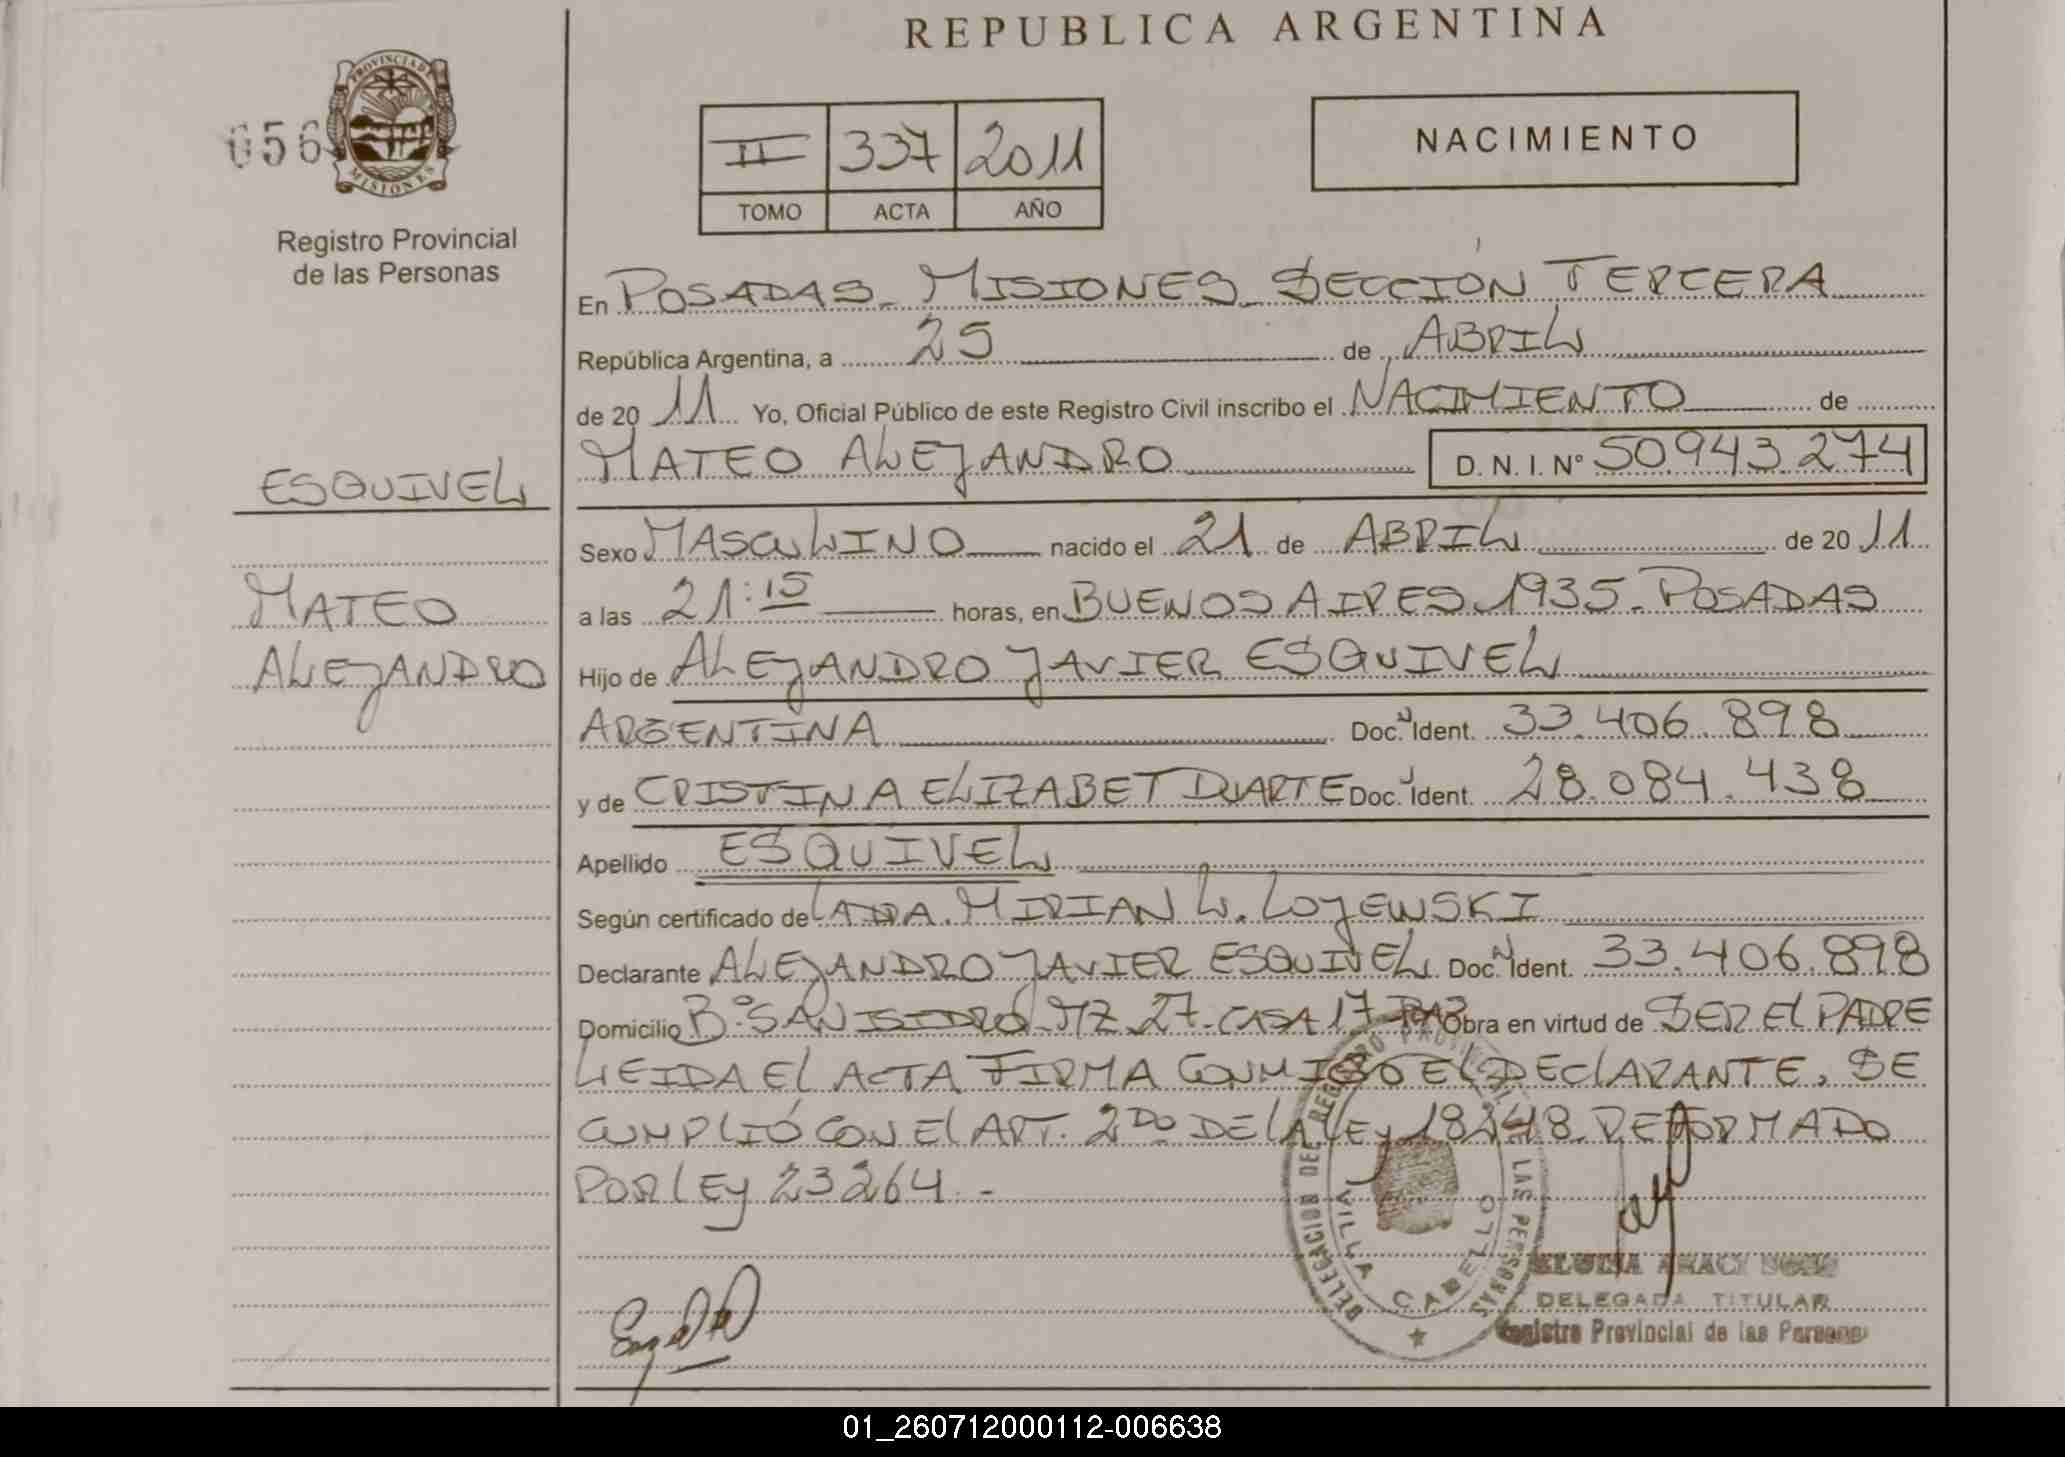 REPUBLICA ARGENTINA
056
PROVINCIA DE MISIONES
Registro Provincial
de las Personas
II 337 2011
TOMO ACTA AÑO
NACIMIENTO
En POSADAS - MISIONES - SECCIÓN TERCERA
República Argentina, a 25 de ABRIL
de 2011 Yo, Oficial Público de este Registro Civil inscribo el NACIMIENTO de
MATEO ALEJANDRO D.N.I. Nº 50.943.274
ESQUIVEL
MATEO
ALEJANDRO
Sexo MASCULINO nacido el 21 de ABRIL de 2011
a las 21:15 horas, en BUENOS AIRES 1935. POSADAS
Hijo de ALEJANDRO JAVIER ESQUIVEL
ARGENTINA Doc. Ident. 33.406.898
y de CRISTINA ELIZABET DUARTE Doc. Ident. 28.084.438
Apellido ESQUIVEL
Según certificado de LADRA. MIRIAN L. LOJEWSKI
Declarante ALEJANDRO JAVIER ESQUIVEL Doc. Ident. 33.406.898
Domicilio Bº SAN ISIDRO MZ 27 - CASA 17 Obra en virtud de SER El PADRE
LEIDA El ACTA FIRMA CONMIGO El DEClARANTE, SE
CUMPLIÓ CON El ART. 2DO DE lA lEy 18248 REFORMADO
POR lEy 23264 -
DELEGACION DEL REGISTRO PROVINCIAL DE LAS PERSONAS
VILLA CABELLO
DELEGADA TITULAR
Registro Provincial de las Personas
01_260712000112-006638